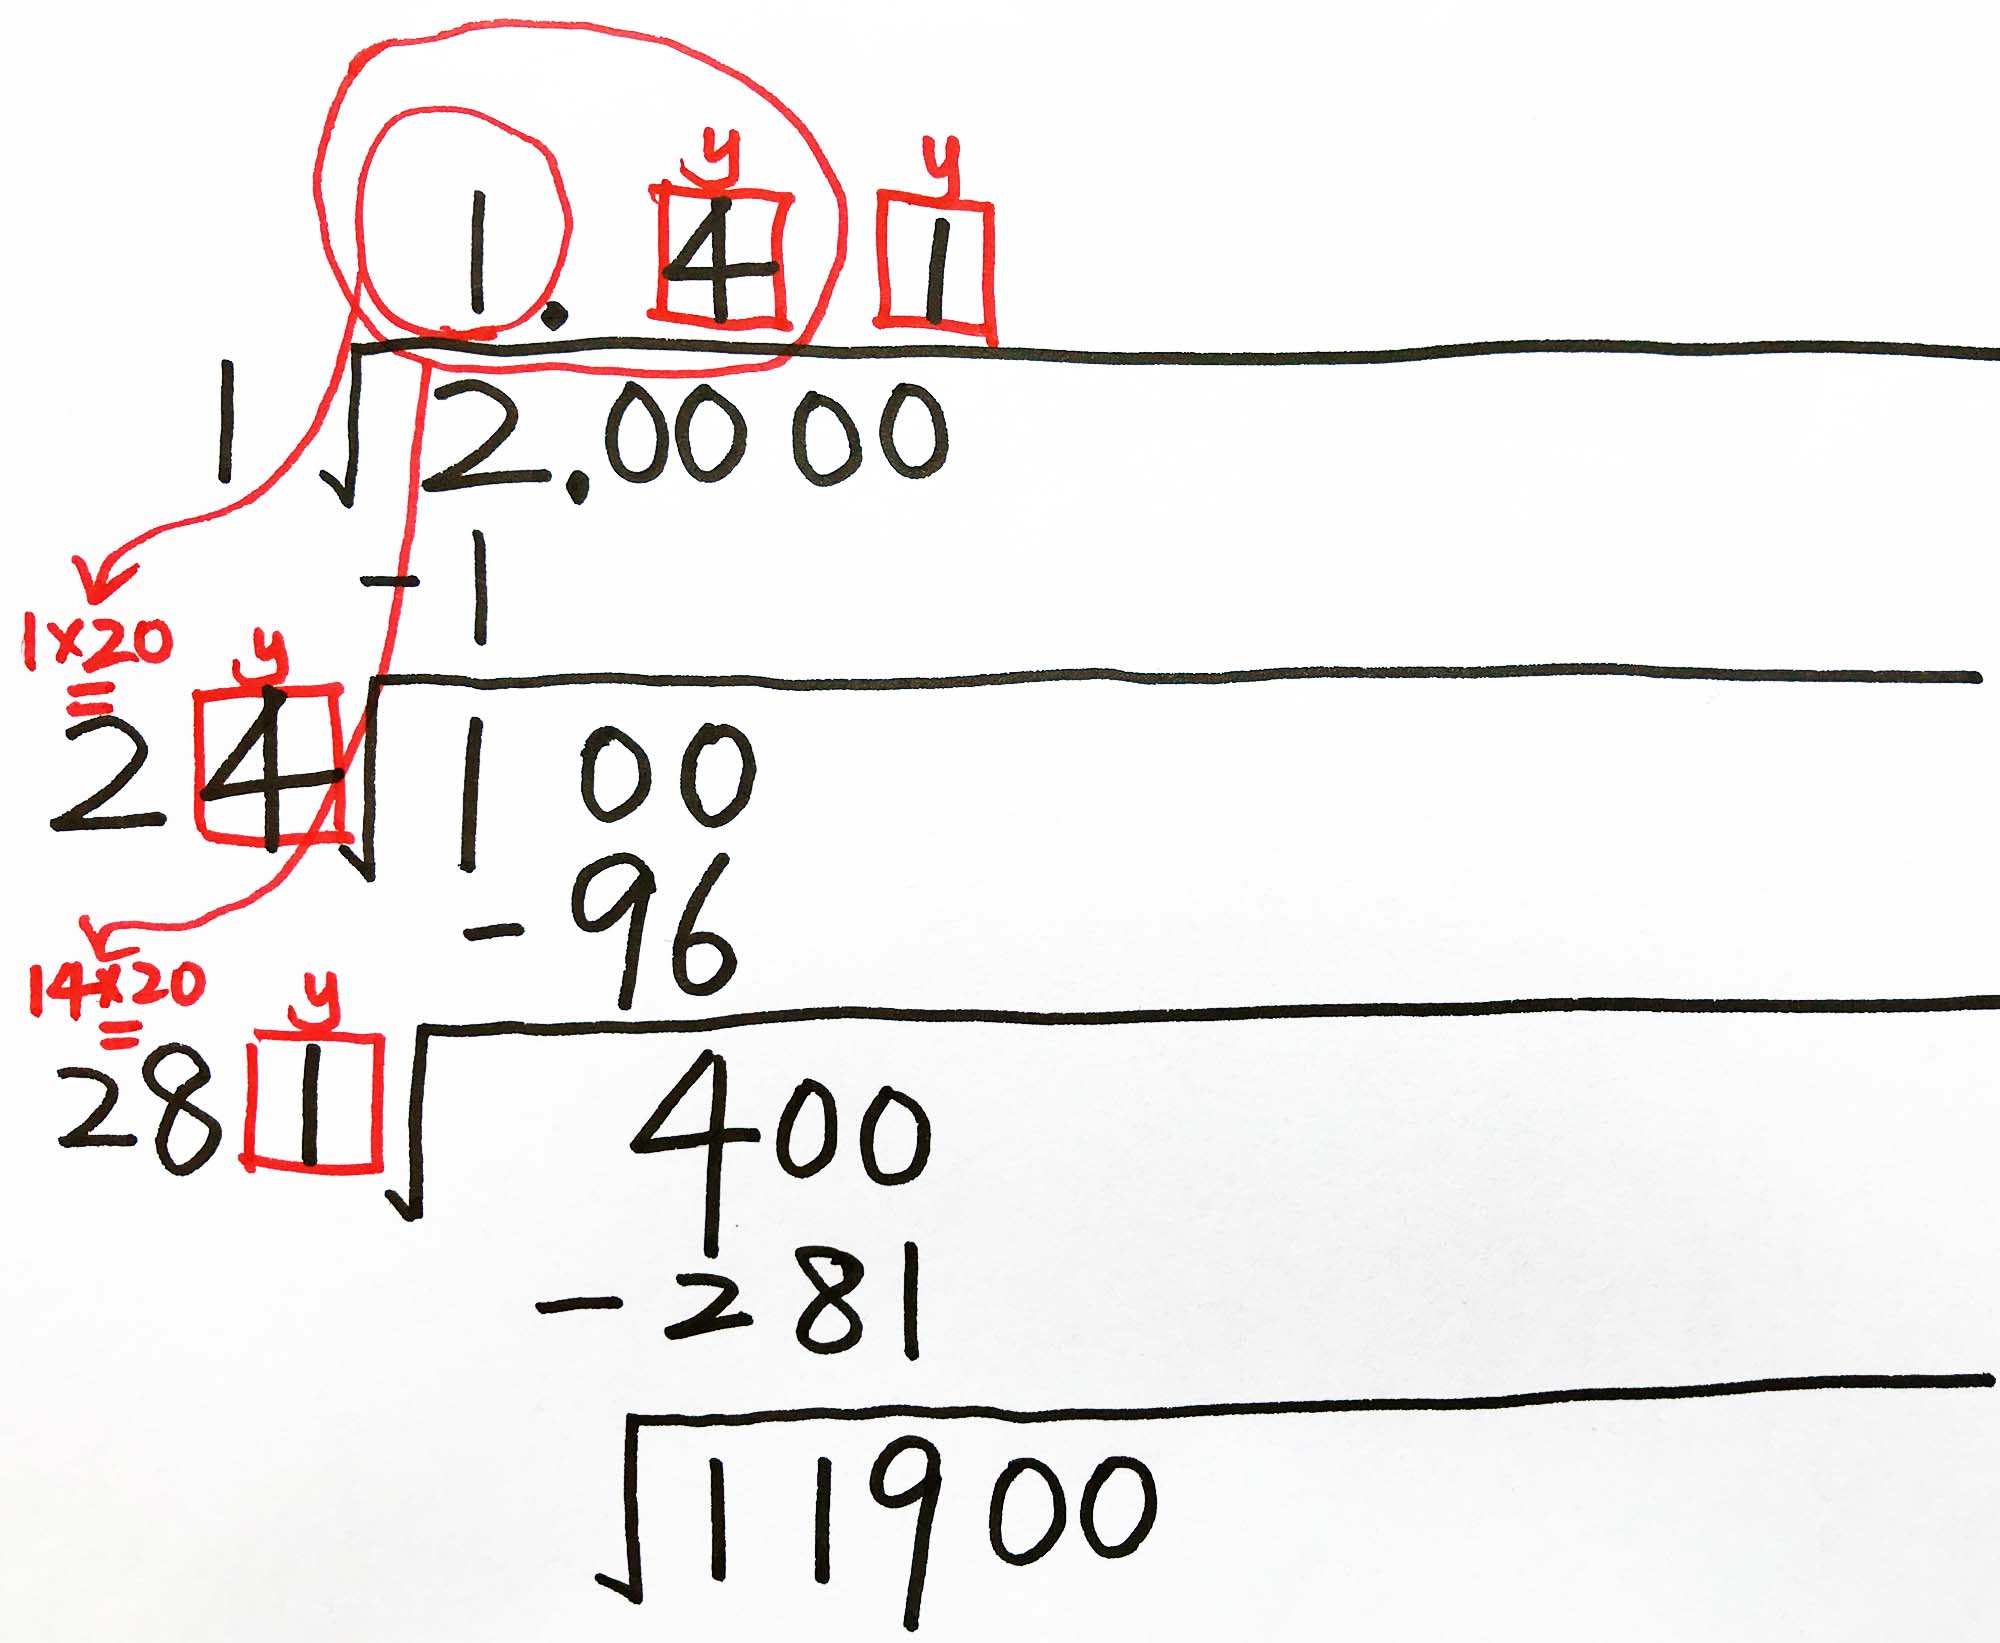 y y
1. 4 1
1 √2.0000
- 1
1×20 y
24 √1 00
- 96
14×20 y
281 √400
- 281
√11900